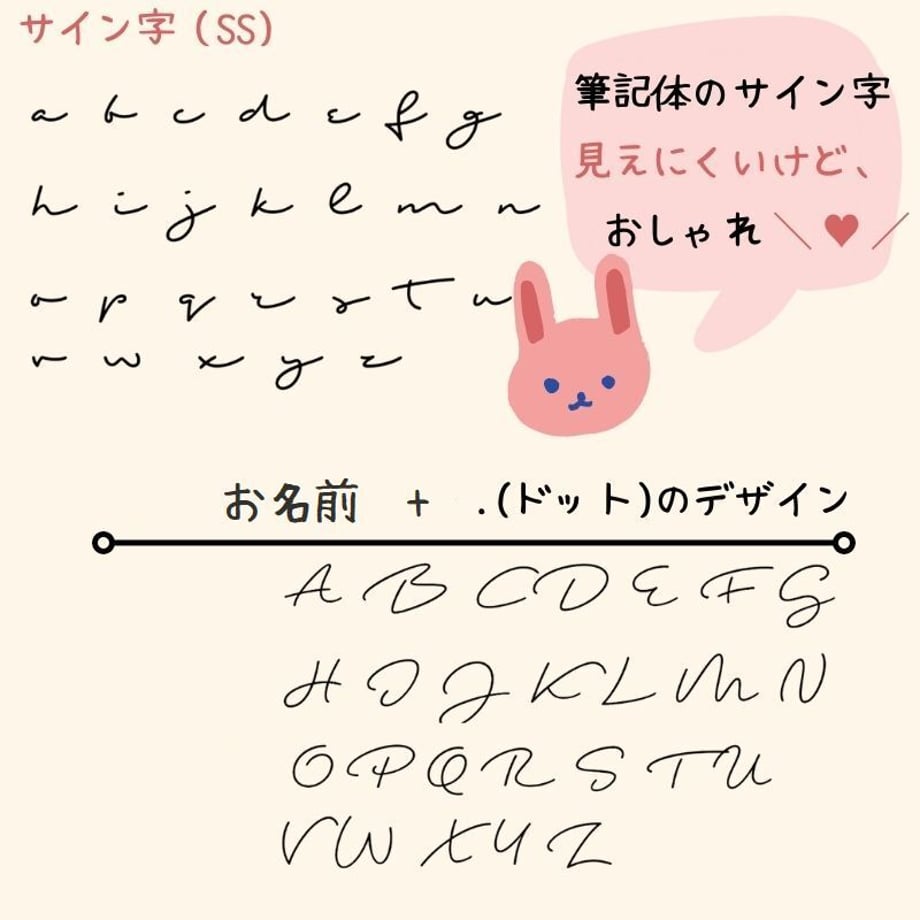 サイン字 (SS)
筆記体のサイン字
見えにくいけど、
おしゃれ ＼ ♥ ／
a b c d e f g
h i j k l m n
o p q r s t u
v w x y z
お名前 + .(ドット)のデザイン
A B C D E F G
H I J K L M N
O P Q R S T U
V W X Y Z